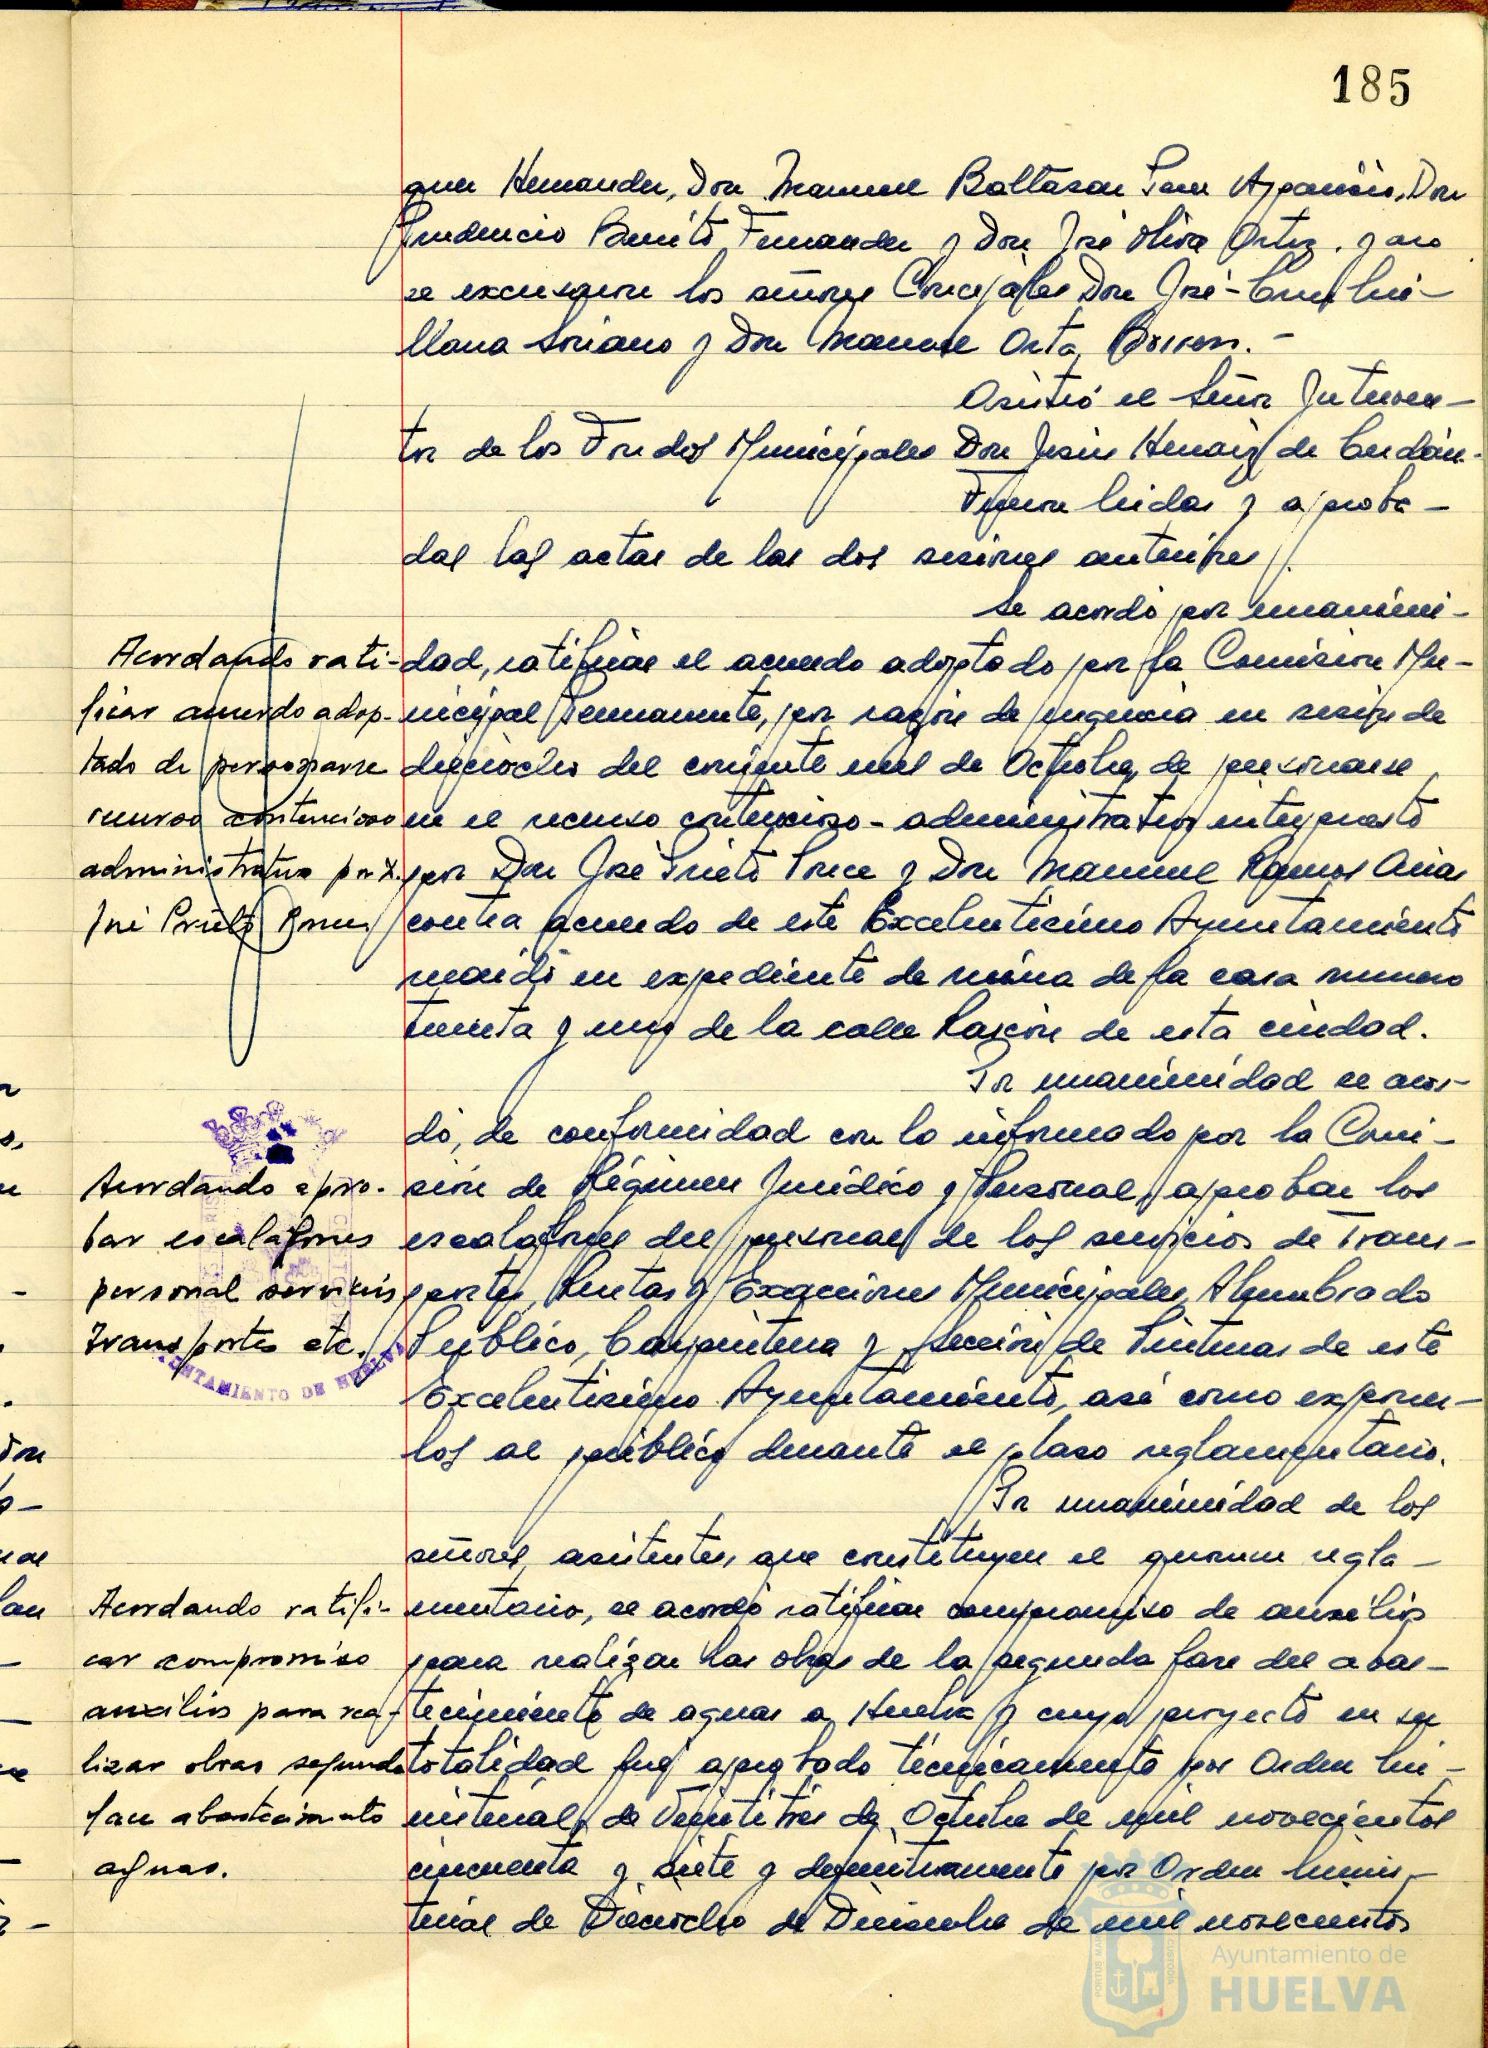 185
Hernandez, Don Manuel Baltasar Aparicio, Don
Prudencio Benito Fernandez y Don José Oliva Ortiz, y no
se excusaron los señores Concejales Don José
llana Soriano y Don Manuel Orta
Asistió el Señor Interven-
tor de los Fondos Municipales Don Jesús de
Fueron leidas y aproba-
das las actas de las dos sesiones anteriores.
Se acordó por unanimi-
Acordando rati-
ficar acuerdo adop-
tado de personarse
recurso contencioso
administrativo por D.
José Prieto Ponce
dad, ratificar el acuerdo adoptado por la Comisión Mu-
nicipal Permanente, por razón de urgencia en sesión de
dieciocho del corriente mes de Octubre, de personarse
en el recurso contencioso-administrativo interpuesto
por Don José Prieto Ponce y Don Manuel Ramos Arias
contra acuerdo de este Excelentísimo Ayuntamiento
en expediente de ruina de la casa numero
treinta y uno de la calle Rascón de esta ciudad.
Por unanimidad se acor-
dó, de conformidad con lo informado por la Comi-
Acordando apro-
bar escalafones
personal servicios
transportes etc.
AYUNTAMIENTO DE HUELVA
sión de Régimen Jurídico y Personal, aprobar los
escalafones del personal de los servicios de Trans-
portes, Rentas y Exacciones Municipales, Alumbrado
Público, Carpinteria y sección de Pinturas de este
Excelentísimo Ayuntamiento, asi como exponer-
los al público durante el plazo reglamentario.
Por unanimidad de los
señores asistentes, que constituyen el quorum regla-
Acordando ratifi-
car compromiso
auxilios para rea-
lizar obras segunda
fase abastecimiento
aguas.
mentario, se acordó ratificar compromiso de auxilios
para realizar las obras de la segunda fase del abas-
tecimiento de aguas a Huelva y cuyo proyecto en su
totalidad fué aprobado técnicamente por Orden Mi-
nisterial, de Veintitrés de Octubre de mil novecientos
cincuenta y siete y definitivamente por Orden Minis-
terial de Dieciocho de Diciembre de mil novecientos
Ayuntamiento de
HUELVA